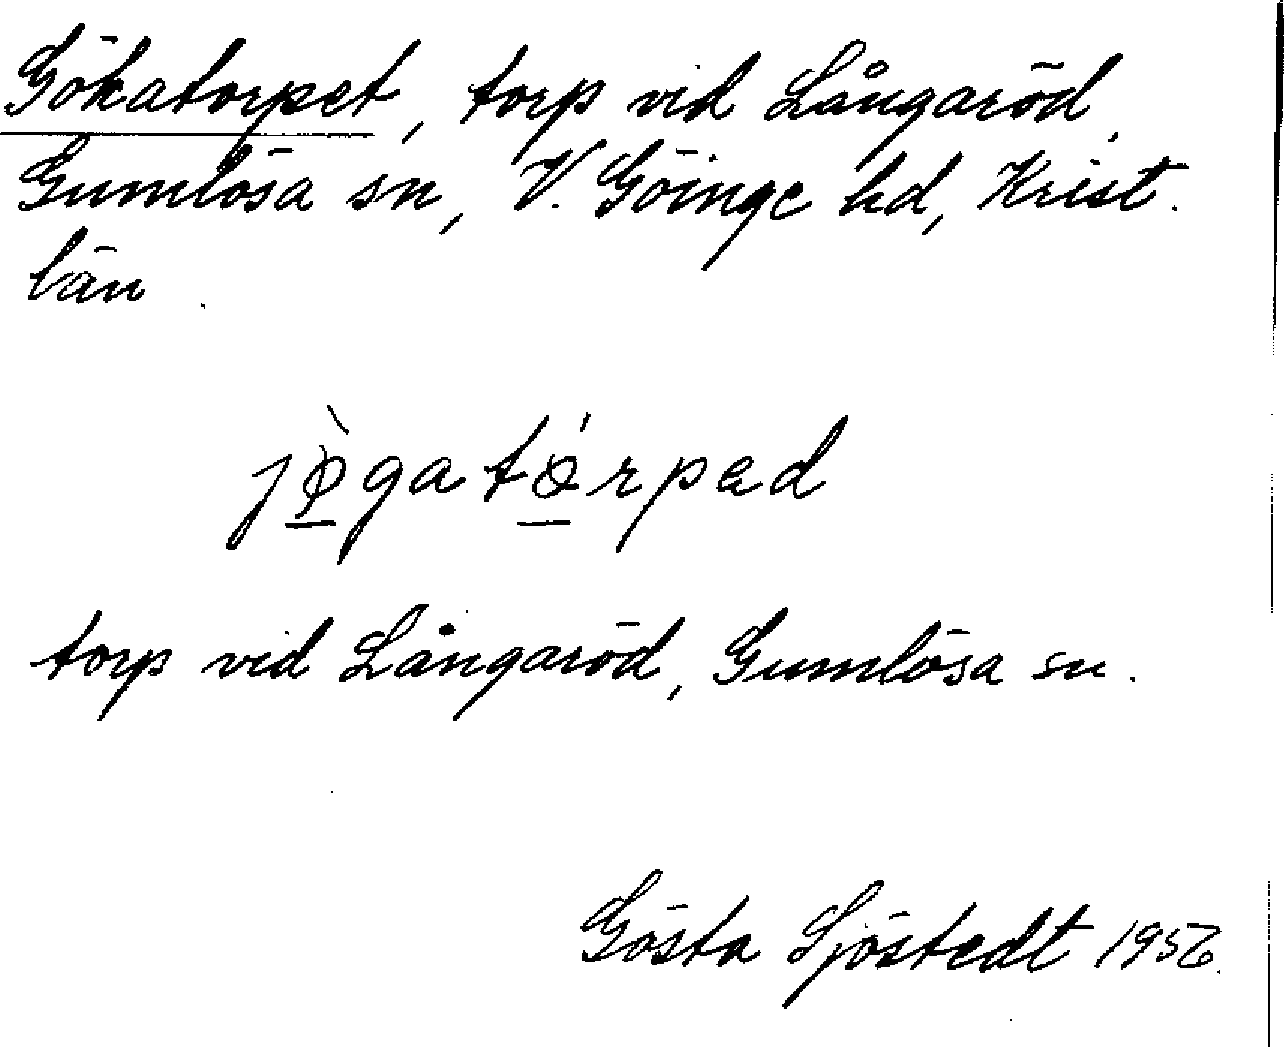 Gökatorpet, torp vid Långaröd,
Gumlösa sn, V. Göinge hd, Krist.
län.
jø̀gatǿrpad
torp vid Långaröd, Gumlösa sn.
Gösta Sjöstedt